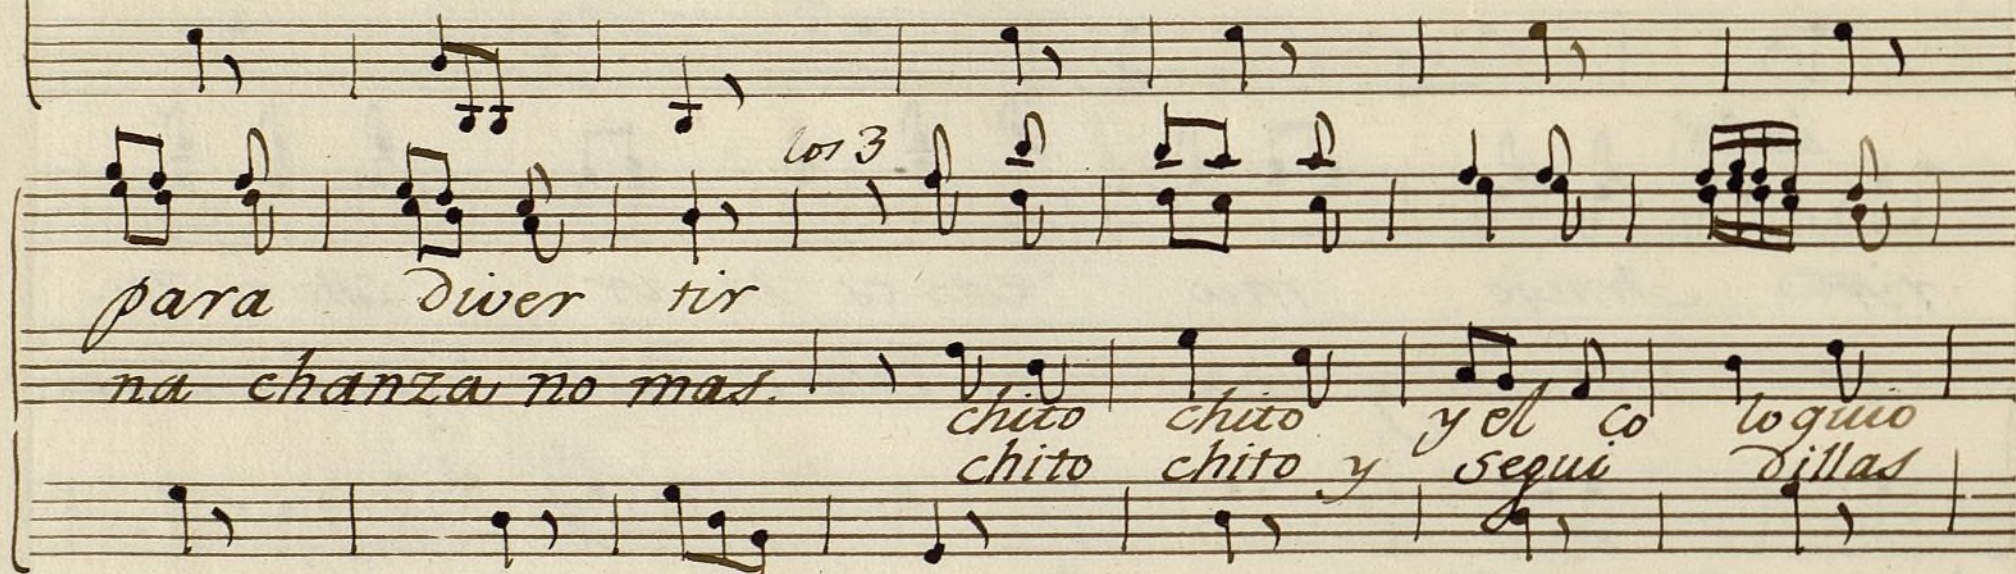 los 3
para diver tir
na chanza no mas.
chito chito y el co loquio
chito chito y segui dillas